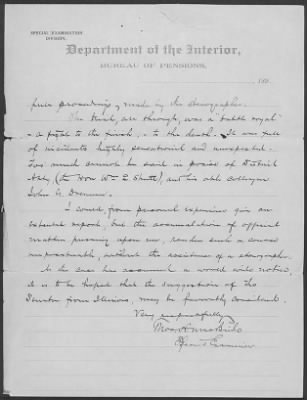 SPECIAL EXAMINATION
DIVISION.
Department of the Interior,
BUREAU OF PENSIONS,
188 .
full proceedings, made by the stenographer.
The trial, all through, was a "battle royal"
- a fight to the finish, - to the death. It was full
of incidents highly sensational and unexpected.
Too much cannot be said in praise of District
Atty (the Hon Wm E. ) and his able colleague
John G.
I could, from personal experience give an
extended report, but the accumulation of official
matters pressing upon me, renders such a course
impracticable, without the assistance of a stenographer.
As the case has assumed a world wide notice,
it is to be hoped that the suggestion of the
Senator from Illinois, may be favorably considered.
Very respectfully
Special Examiner